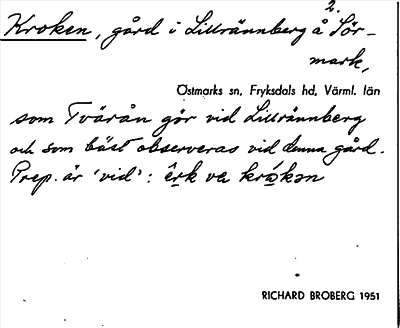 2.
Kroken, gård i Lillrännberg å Sör-
mark,
Östmarks sn, Fryksdals hd, Värml. län
som Tvärån gör vid Lillrännberg
och som bäst observeras vid denna gård.
Prep. är 'vid': êrk va krökən
RICHARD BROBERG 1951